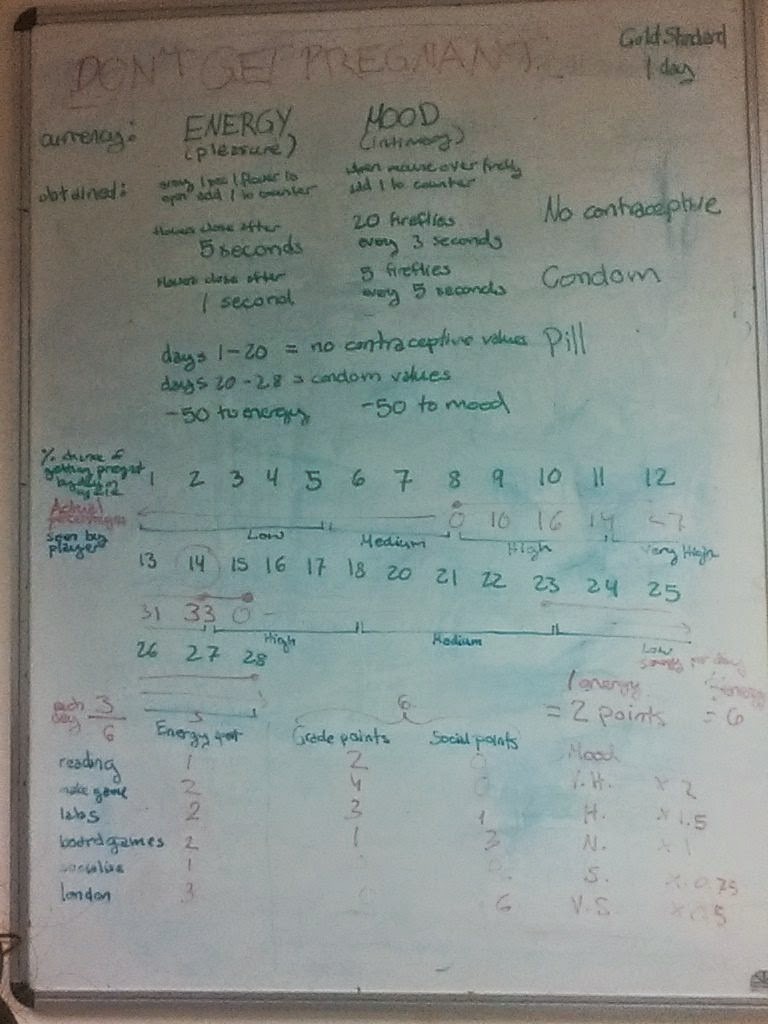 DON'T GET PREGNANT
Gold Standard
1 day
currency: ENERGY MOOD
(pleasure) (intimacy)
obtained: every 1 flower to when mouse over firefly
open add 1 to counter add 1 to counter
flowers close after 20 fireflies No contraceptive
5 seconds every 3 seconds
flowers close after 5 fireflies Condom
1 second every 5 seconds
days 1-20 = no contraceptive values Pill
days 20-28 = condom values
-50 to energy -50 to mood
% chance of
getting pregnant
by day 1 2 3 4 5 6 7 8 9 10 11 12
Actual
percentages 0 10 16 14 27
seen by
player Low Medium High Very High
13 14 15 16 17 18 20 21 22 23 24 25
31 33 0 -
High Medium Low
26 27 28
each 3
day 6
5 6
1 energy
= 2 points = 6
Energy Grade points Social points
reading 1 2 0 Mood
make game 2 4 0 V.H. x 2
labs 2 3 1 H. x 1.5
boardgames 2 1 3 N. x 1
socialise 1 S. x 0.75
london 3 6 V.S. x 0.5